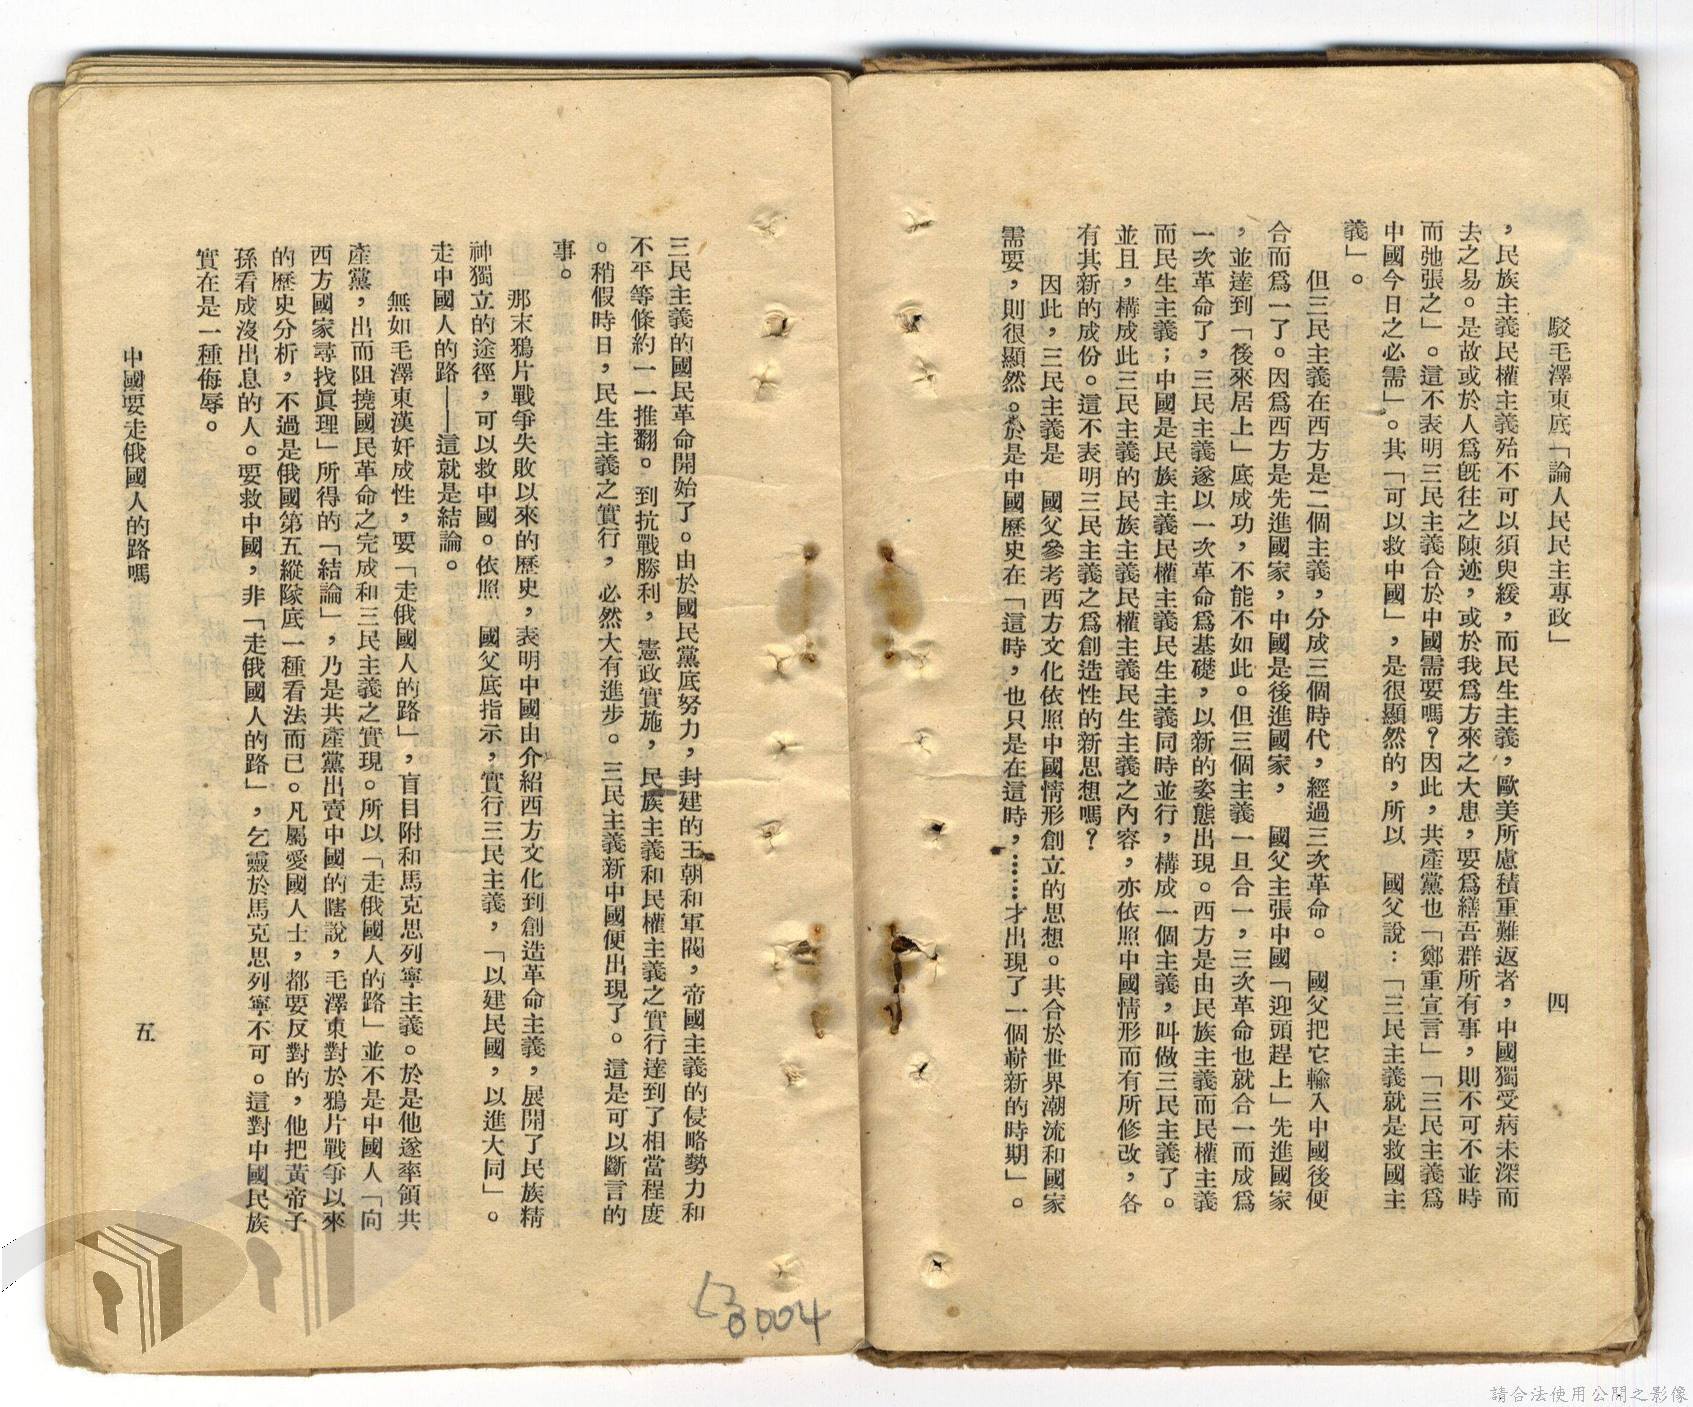 駁毛澤東底「論人民民主專政」
四
，民族主義民權主義殆不可以須臾緩，而民生主義，歐美所慮積重難返者，中國獨受病未深而
去之易。是故或於人爲旣往之陳迹，或於我爲方來之大患，要爲繕吾群所有事，則不可不並時
而弛張之」。這不表明三民主義合於中國需要嗎？因此，共產黨也「鄭重宣言」「三民主義爲
中國今日之必需」。其「可以救中國」，是很顯然的，所以　國父說：「三民主義就是救國主
義」。
但三民主義在西方是二個主義，分成三個時代，經過三次革命。　國父把它輸入中國後便
合而爲一了。因爲西方是先進國家，中國是後進國家，　國父主張中國「迎頭趕上」先進國家
，並達到「後來居上」底成功，不能不如此。但三個主義一旦合一，三次革命也就合一而成爲
一次革命了，三民主義遂以一次革命爲基礎，以新的姿態出現。西方是由民族主義而民權主義
而民生主義；中國是民族主義民權主義民生主義同時並行，構成一個主義，叫做三民主義了。
並且，構成此三民主義的民族主義民權主義民生主義之內容，亦依照中國情形而有所修改，各
有其新的成份。這不表明三民主義之爲創造性的新思想嗎？
因此，三民主義是　國父參考西方文化依照中國情形創立的思想。其合於世界潮流和國家
需要，則很顯然。於是中國歷史在「這時，也只是在這時，……才出現了一個嶄新的時期」。
三民主義的國民革命開始了。由於國民黨底努力，封建的王朝和軍閥，帝國主義的侵略勢力和
不平等條約一一推翻。到抗戰勝利，憲政實施，民族主義和民權主義之實行達到了相當程度
。稍假時日，民生主義之實行，必然大有進步。三民主義新中國便出現了。這是可以斷言的
事。
那末鴉片戰爭失敗以來的歷史，表明中國由介紹西方文化到創造革命主義，展開了民族精
神獨立的途徑，可以救中國。依照　國父底指示，實行三民主義，「以建民國，以進大同」。
走中國人的路——這就是結論。
無如毛澤東漢奸成性，要「走俄國人的路」，盲目附和馬克思列寧主義。於是他遂率領共
產黨，出而阻撓國民革命之完成和三民主義之實現。所以「走俄國人的路」並不是中國人「向
西方國家尋找眞理」所得的「結論」，乃是共產黨出賣中國的瞎說，毛澤東對於鴉片戰爭以來
的歷史分析，不過是俄國第五縱隊底一種看法而已。凡屬愛國人士，都要反對的，他把黃帝子
孫看成沒出息的人。要救中國，非「走俄國人的路」，乞靈於馬克思列寧不可。這對中國民族
實在是一種侮辱。
中國要走俄國人的路嗎
五
0004
請合法使用公開之影像